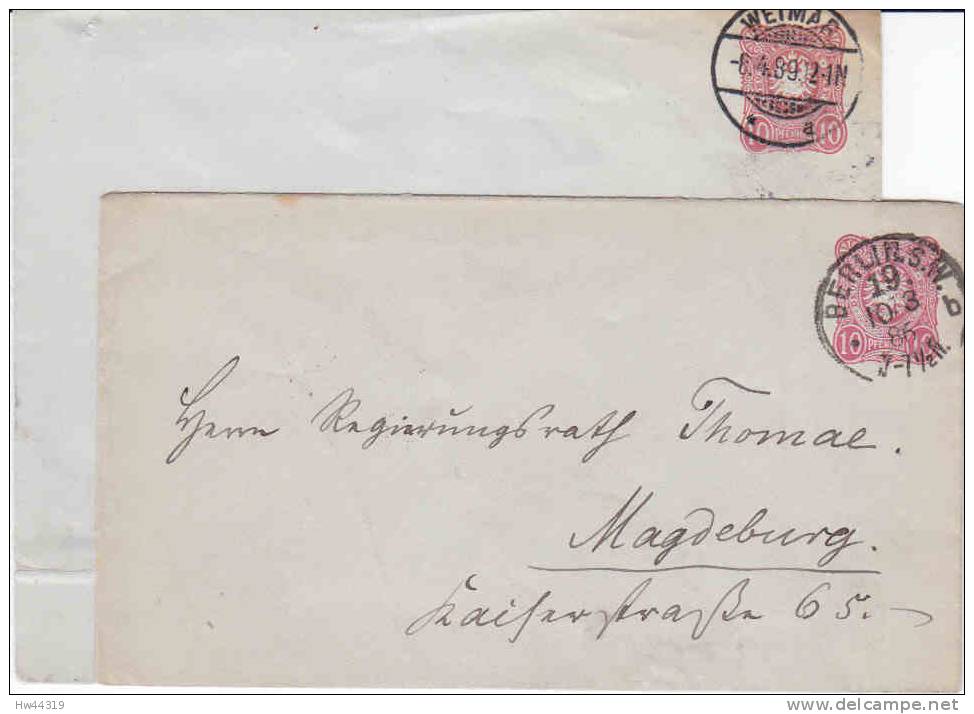 WEIMAR
-6.4.89.12-1N
* a
10 PFENNIG 10
BERLIN.S.W.
19
b
10.3
86
7-7½N.
10 PFENNIG
Herrn Regierungsrath Thomae.
Magdeburg.
Kaiserstraße 65.
Hw44319
www.delcampe.net